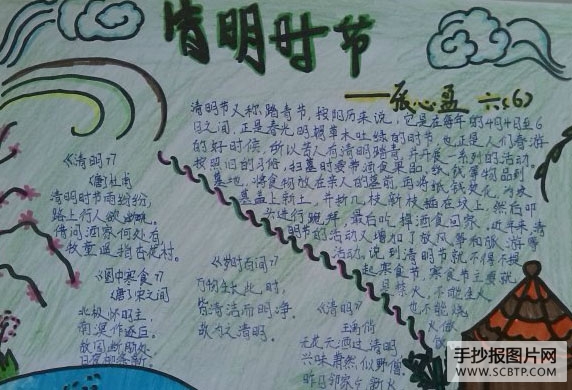 清明时节
——张心盈 六(6)
清明节又称踏青节,按阳历来说,它是在每年的4月4日至6
日之间,正是春光明媚草木吐绿的时节,也正是人们春游
的好时候,所以古人有清明踏青,并开展一系列的活动。
按照旧的习俗,扫墓时要带酒食果品、纸钱等物品到
墓地,将食物放在亲人的墓前,再将纸钱焚化,为坟
墓盖上新土,折几枝新枝插在坟上,然后叩
头进行跪拜,最后吃掉酒食回家。近年来清
明节的活动又增加了放风筝和旅游等
活动。说到清明节就不得不提
起寒食节,寒食节主要就
是禁火,不能生火
也不能烧
《清明》
(唐)杜牧
清明时节雨纷纷,
路上行人欲断魂。
借问酒家何处有,
牧童遥指杏花村。
《途中寒食》
(唐)宋之问
北极怀明主,
南溟作逐臣。
故园断肠处
日夜柳条新。
《岁时百问》
万物生长此时,
皆清洁而明净。
故为之清明。
《清明》
王禹偁
无花无酒过清明
兴味萧然似野僧
昨日邻家乞新火
手抄报图片网
WWW.SCBTP.COM